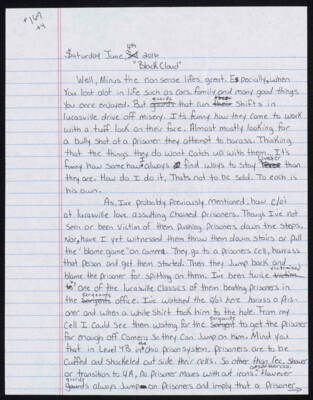 Saturday June 4th 2016
"Black Cloud"
Well, Minus the nonsense lifes great. Especially, when
You lost alot in life such as cars, family and many good things
you once enjoyed. But guards that run there shifts in
lucasville drive off misery. It's funny how they come to work
with a tuff look on their face. Almost mostly looking for
a bully shot at a prisoner they attempt to harass. Thinking
that the things they do wont catch up with them. It's
funny how some how I always find ways to stay than
they are. How do I do it, Thats not to be said. To each is
his own.
As, I've probably previously mentioned, how C/O's
at lucasville love assulting chained prisoners. Though I've not
seen or been victim of them pushing prisoners down the steps.
Nor, have I yet witnessed them throw them down stairs or pull
the "blame game" on camera. They go to a prisoners cell, harrass
that person and get them started. Then they Jump back and
blame the prisoner for spitting on them. I've been twice victimized
to one of the lucasville classics of them beating prisoners in
the sergeants office. I've watched the c/o's here harass a Pris-
oner and when a white Shirt took him to the hole. From my
cell I could see them waiting for the sergeant to get the prisoner
far enough off Camera So they Can Jump on him. Mind you
that in Level 4B the ohio prison system. Prisoners are to be
cuffed and shackeled out side their cells. So other than rec, shower
or transition to 4A, No prisoner moves with out irons. However
guards always Jump on Prisoners and imply that a Prisoner